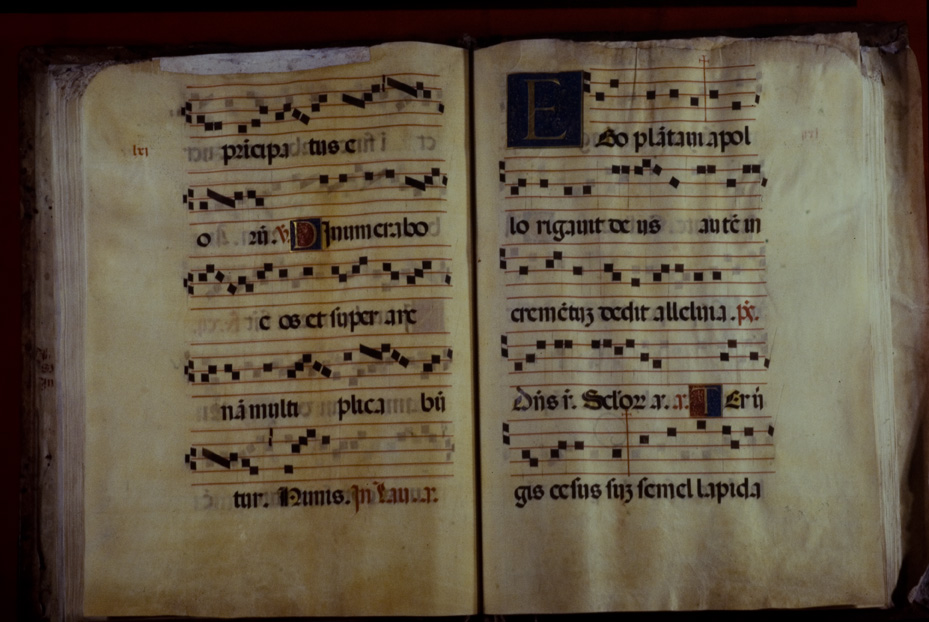 lxj
pricipa tus e
o rũ. ℣ Dinumerabo
e os et super are
nã multi plica bũ
tur. Nimis. In lau. a.
Ego plãtaui apol
lo rigauit de us autẽ in
cremẽtuȝ dedit alleluia. p̃s.
Dñs r̃. Sc̃loꝝ. a. a. Ter ũ
gis cesus suȝ semel lapida